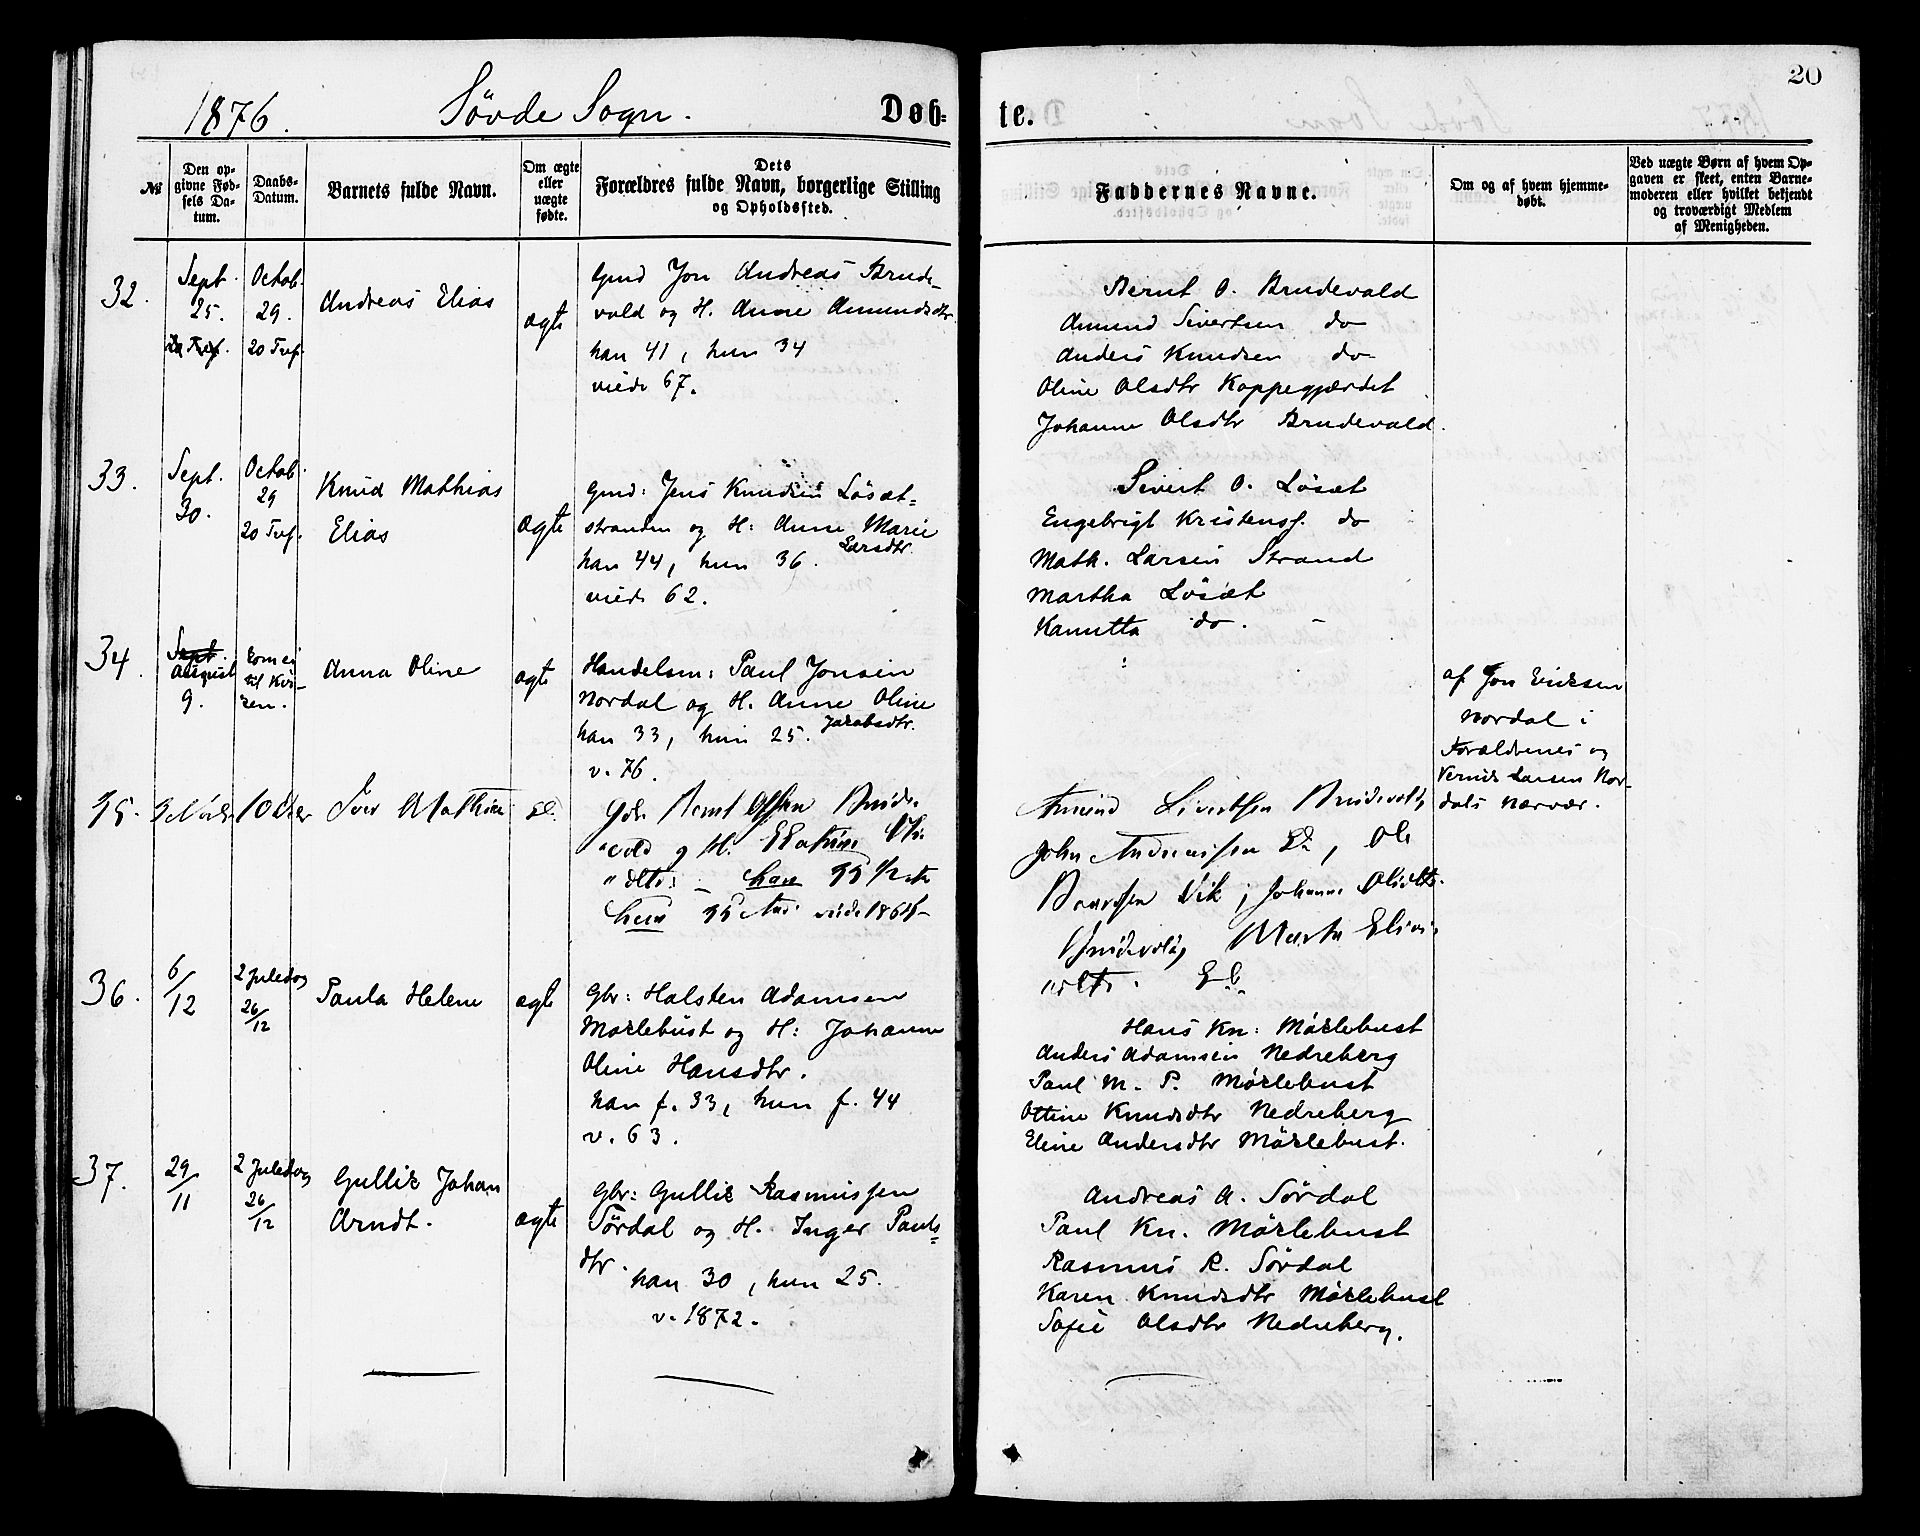 20
1876. Søvde Sogn. Døb-
te.
No
Den op-
givne Fød-
sels Da-
tum.
Daabs-
Datum.
Barnets fulde Navn.
Om ægte
eller
uægte
fødte.
Dets
Forældres fulde Navn, borgerlige Stilling
og Opholdssted.
Faddernes Navne.
Om og af hvem hjemme-
døbt.
Ved uægte Børn af hvem Op-
gaven er skeet, enten Barne-
moderen eller hvilket bekjendt
og troværdigt Medlem
af Menigheden.
32.
Sept.
25.
Octob.
29.
20 Tref.
Andreas Elias
ægte
Gmd Jon Andreas Brude-
vold og H. Anne Amundsdtr
han 41, hun 34
viede 67.
Bernt O. Brudevold
Amund Sivertsen do
Anders Knudsen do
Oline Olsdtr Koppegjærdet
Johanne Olsdtr Brudevold.
33.
Sept.
30.
Octob.
29
20 Tref.
Knud Mathias
Elias
ægte
Gmd: Jens Knudsen Løsæt-
stranden og H: Anne Marie
Larsdtr.
han 44, hun 36.
viede 62.
Sivert O. Løsæt
Engebrigt Kristens. do
Math. Larsen Strand
Martha Løsæt
Kanutta do. -
34.
Sept.
August
9.
kom ei
til Kir-
ken.
Anna Oline
ægte
Handelsm: Paul Jonsen
Nordal og H. Anne Oline
Jakobsdtr.
han 33, hun 25.
v. 76.
af Jon Eriksen
Nordal i
Forældrenes og
Verner Larsen Nor-
dals Nærvær.
35.
10 Dcbr
Iver Mathias
D.
Gbr Bernt Olssen Brude-
vold og H.
han 35 1/2 
hun 35
Amund Sivertsen Brudevold,
John Andreassen Do, Ole
Vik, Johanne Olsdtr.
Brudevold,
36.
6/12
2 Juledag
26/12
Paula Helene
ægte
Gbr: Halsten Adamsen
Mørkebust og H: Johanne
Oline Hansdtr.
han f. 33, hun f. 44
v. 63.
Hans Kn: Mørkebust
Anders Adamsen Nedreberg
Paul M. P. Mørkebust
Ottine Knudsdtr Nedreberg
Eline Andersdtr Mørkebust.
37.
29/11
2 Juledag
26/12
Gullik Johan
Arndt.
ægte
Gbr: Gullik Rasmussen
Sørdal og H. Inger Pauls=
dtr.
han 30, hun 25.
v. 1872.
Andreas A. Sørdal
Paul Kn. Mørkebust
Rasmus R. Sørdal
Karen Knudsdtr Mørkebust
Sofie Olsdtr Nedreberg.